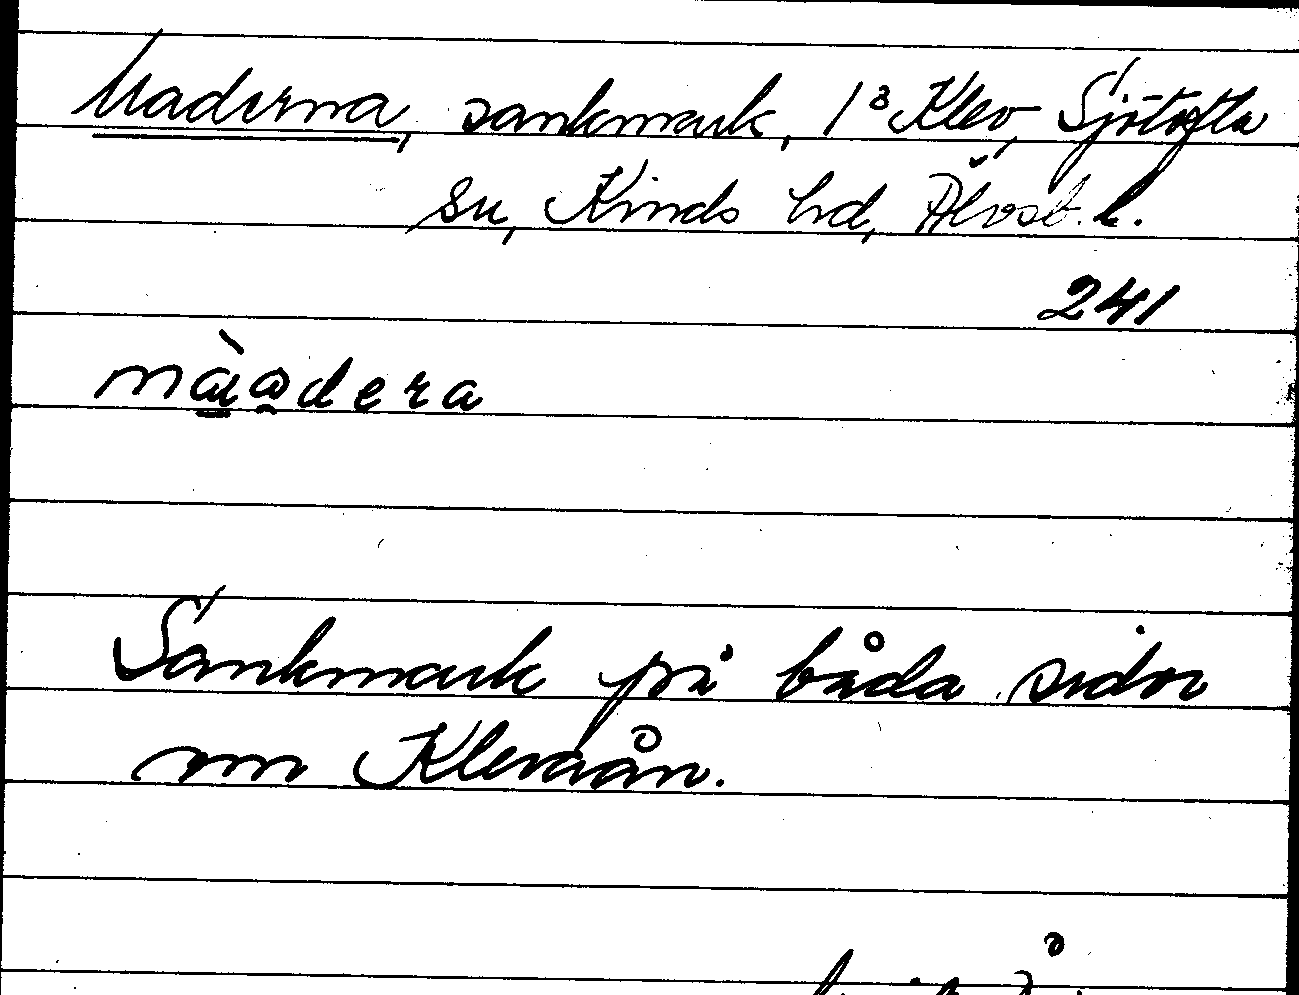 Maderna, sankmark, 1³ Klev, Sjötofta
sn, Kinds hd, Älvsb. l.
241
Sankmark på båda sidor
om Klevaån.